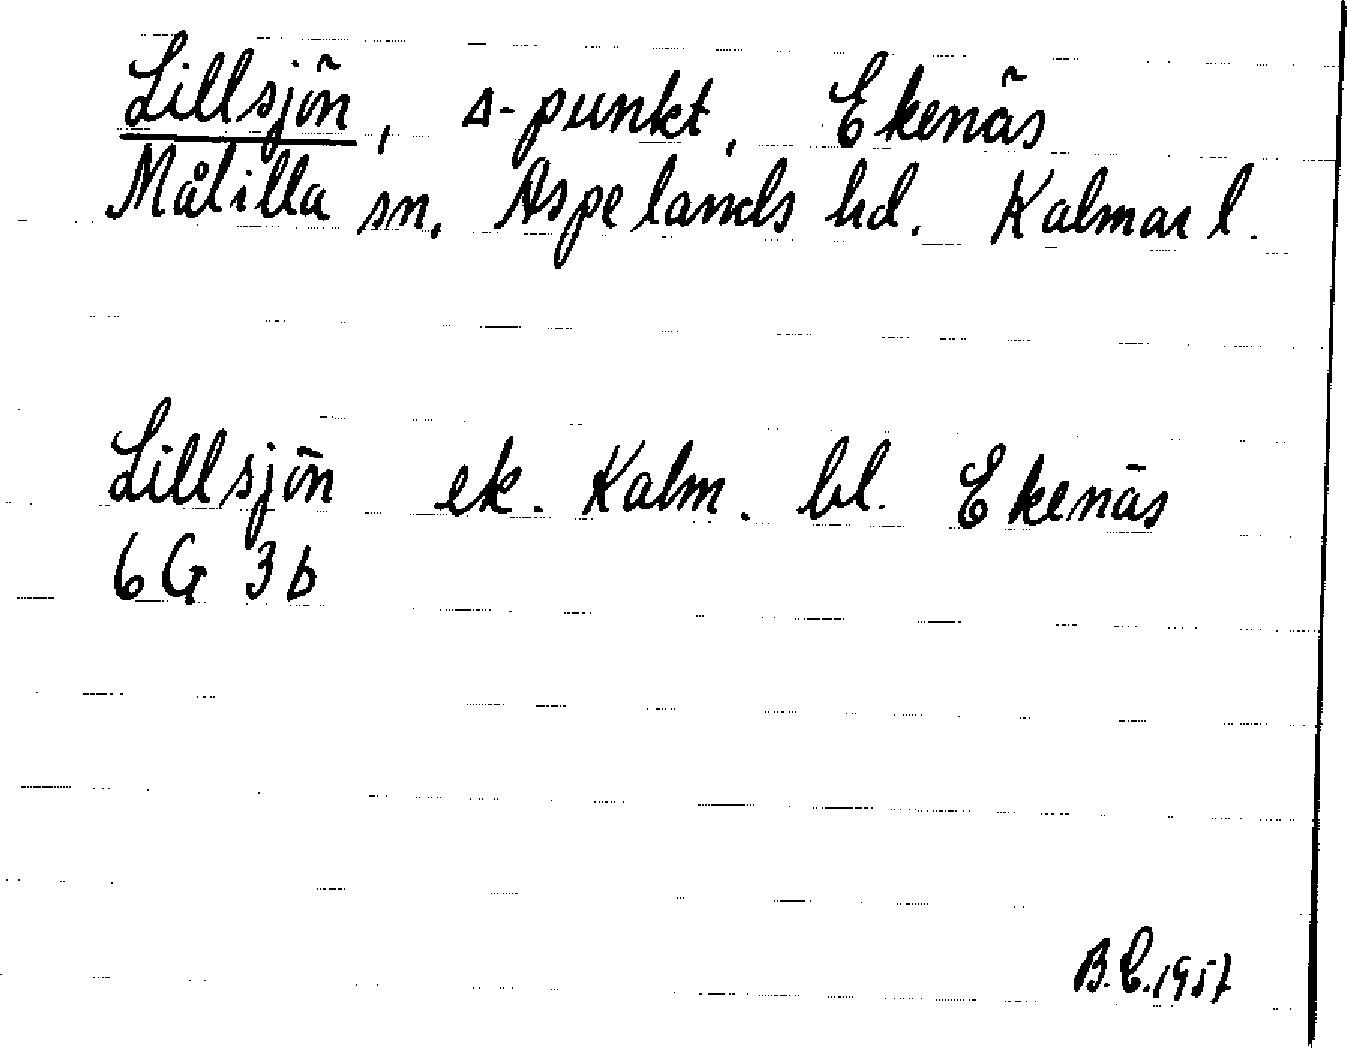 Lillsjön, Δ-punkt, Ekenäs
Målilla sn. Aspelands hd. Kalmar l.
Lillsjön ek. Kalm. bl. Ekenäs
6G 3b
B.C. 1957